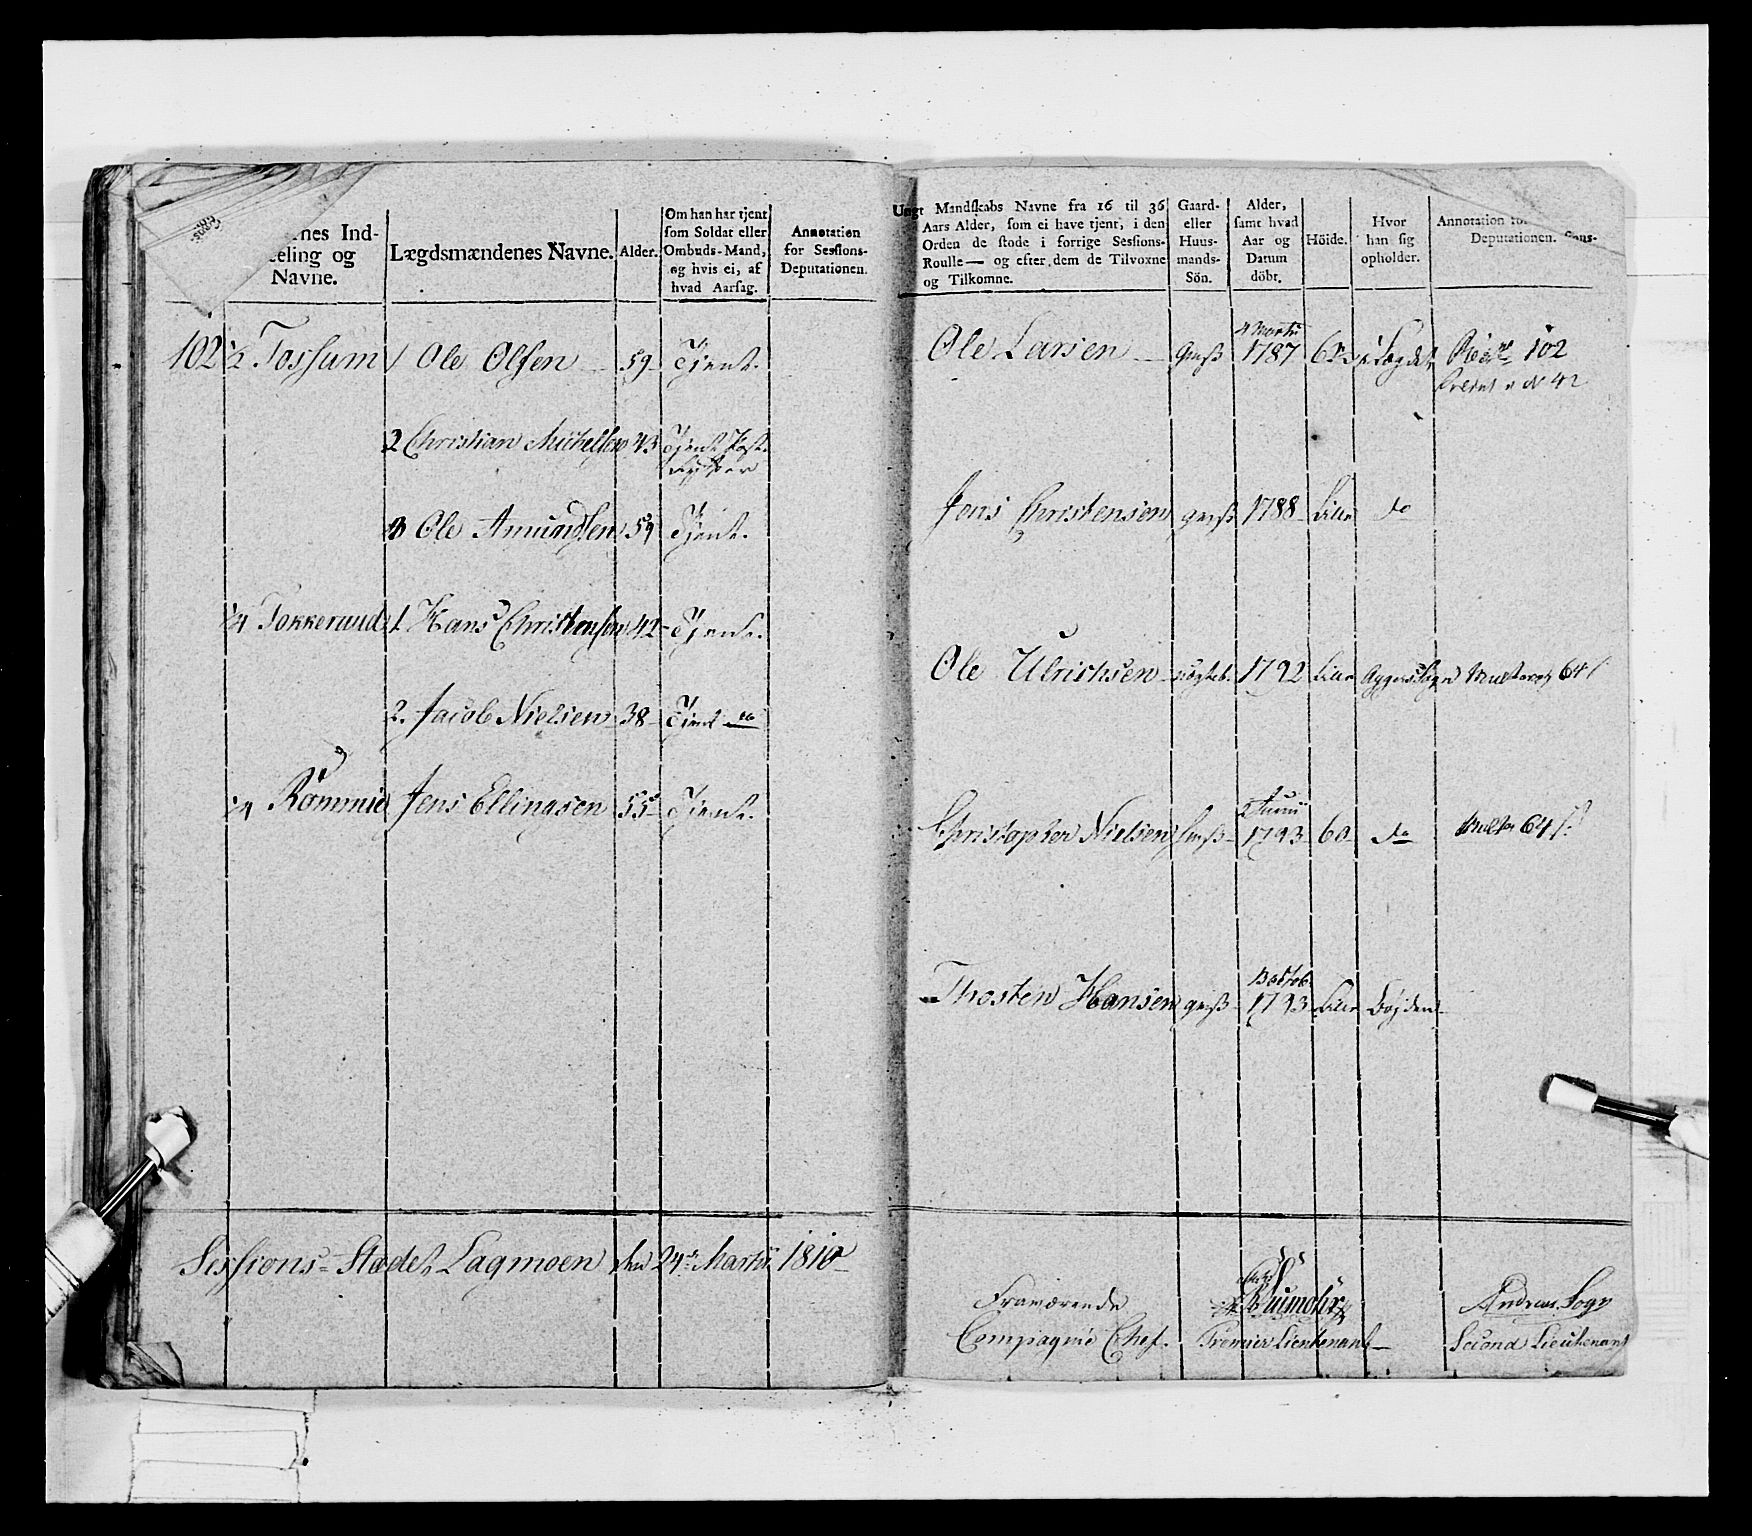 rnes Ind-
eeling og
Navne.
Lægdsmændenes Navne.
Alder.
Om han har tjent
som Soldat eller
Ombuds-Mand,
og hvis ei, af
hvad Aarsag.
Annotation
for Sessions-
Deputationen.
102 ½ Tossum 1 Ole Olsen 59 Tjent.
2 Christian Michelsen 43 Tjent
3 Ole Amundsen 59 Tjent.
¼ Tokkerud 1. Hans Christensen 42 Tjent.
2. Jacob Nielsen 38 Tjent do
¼ Rommie Jens Ellingsen 55 Tjent.
Sessions-Stædet Lagmoen den 24de Martii 1810
Ungt Mandskabs Navne fra 16 til 36
Aars Alder, som ei have tjent, i den
Orden de stode i forrige Sessions-
Roulle— og efter dem de Tilvoxne
og Tilkomne.
Gaard-
eller
Huus-
mands-
Sön.
Alder,
samt hvad
Aar og
Datum
döbt.
Höide.
Hvor
han sig
opholder.
Annotation for Sessions-
Deputationen.
4 Martii
Ole Larsen 1787 i Lægdet 102
No 42
Jens Christensen 1788 Lille do
Ole Ulrichsen 1792 Lille Aggers Sogn 64
2 Junii
Christopher Nielsen 1793 60 do 64
Thosten Hansen 1793 Lille Bojden
Fraværende Rumohr Andreas
Compagnie Chef. Premier Lieutenant Second Lieutenant